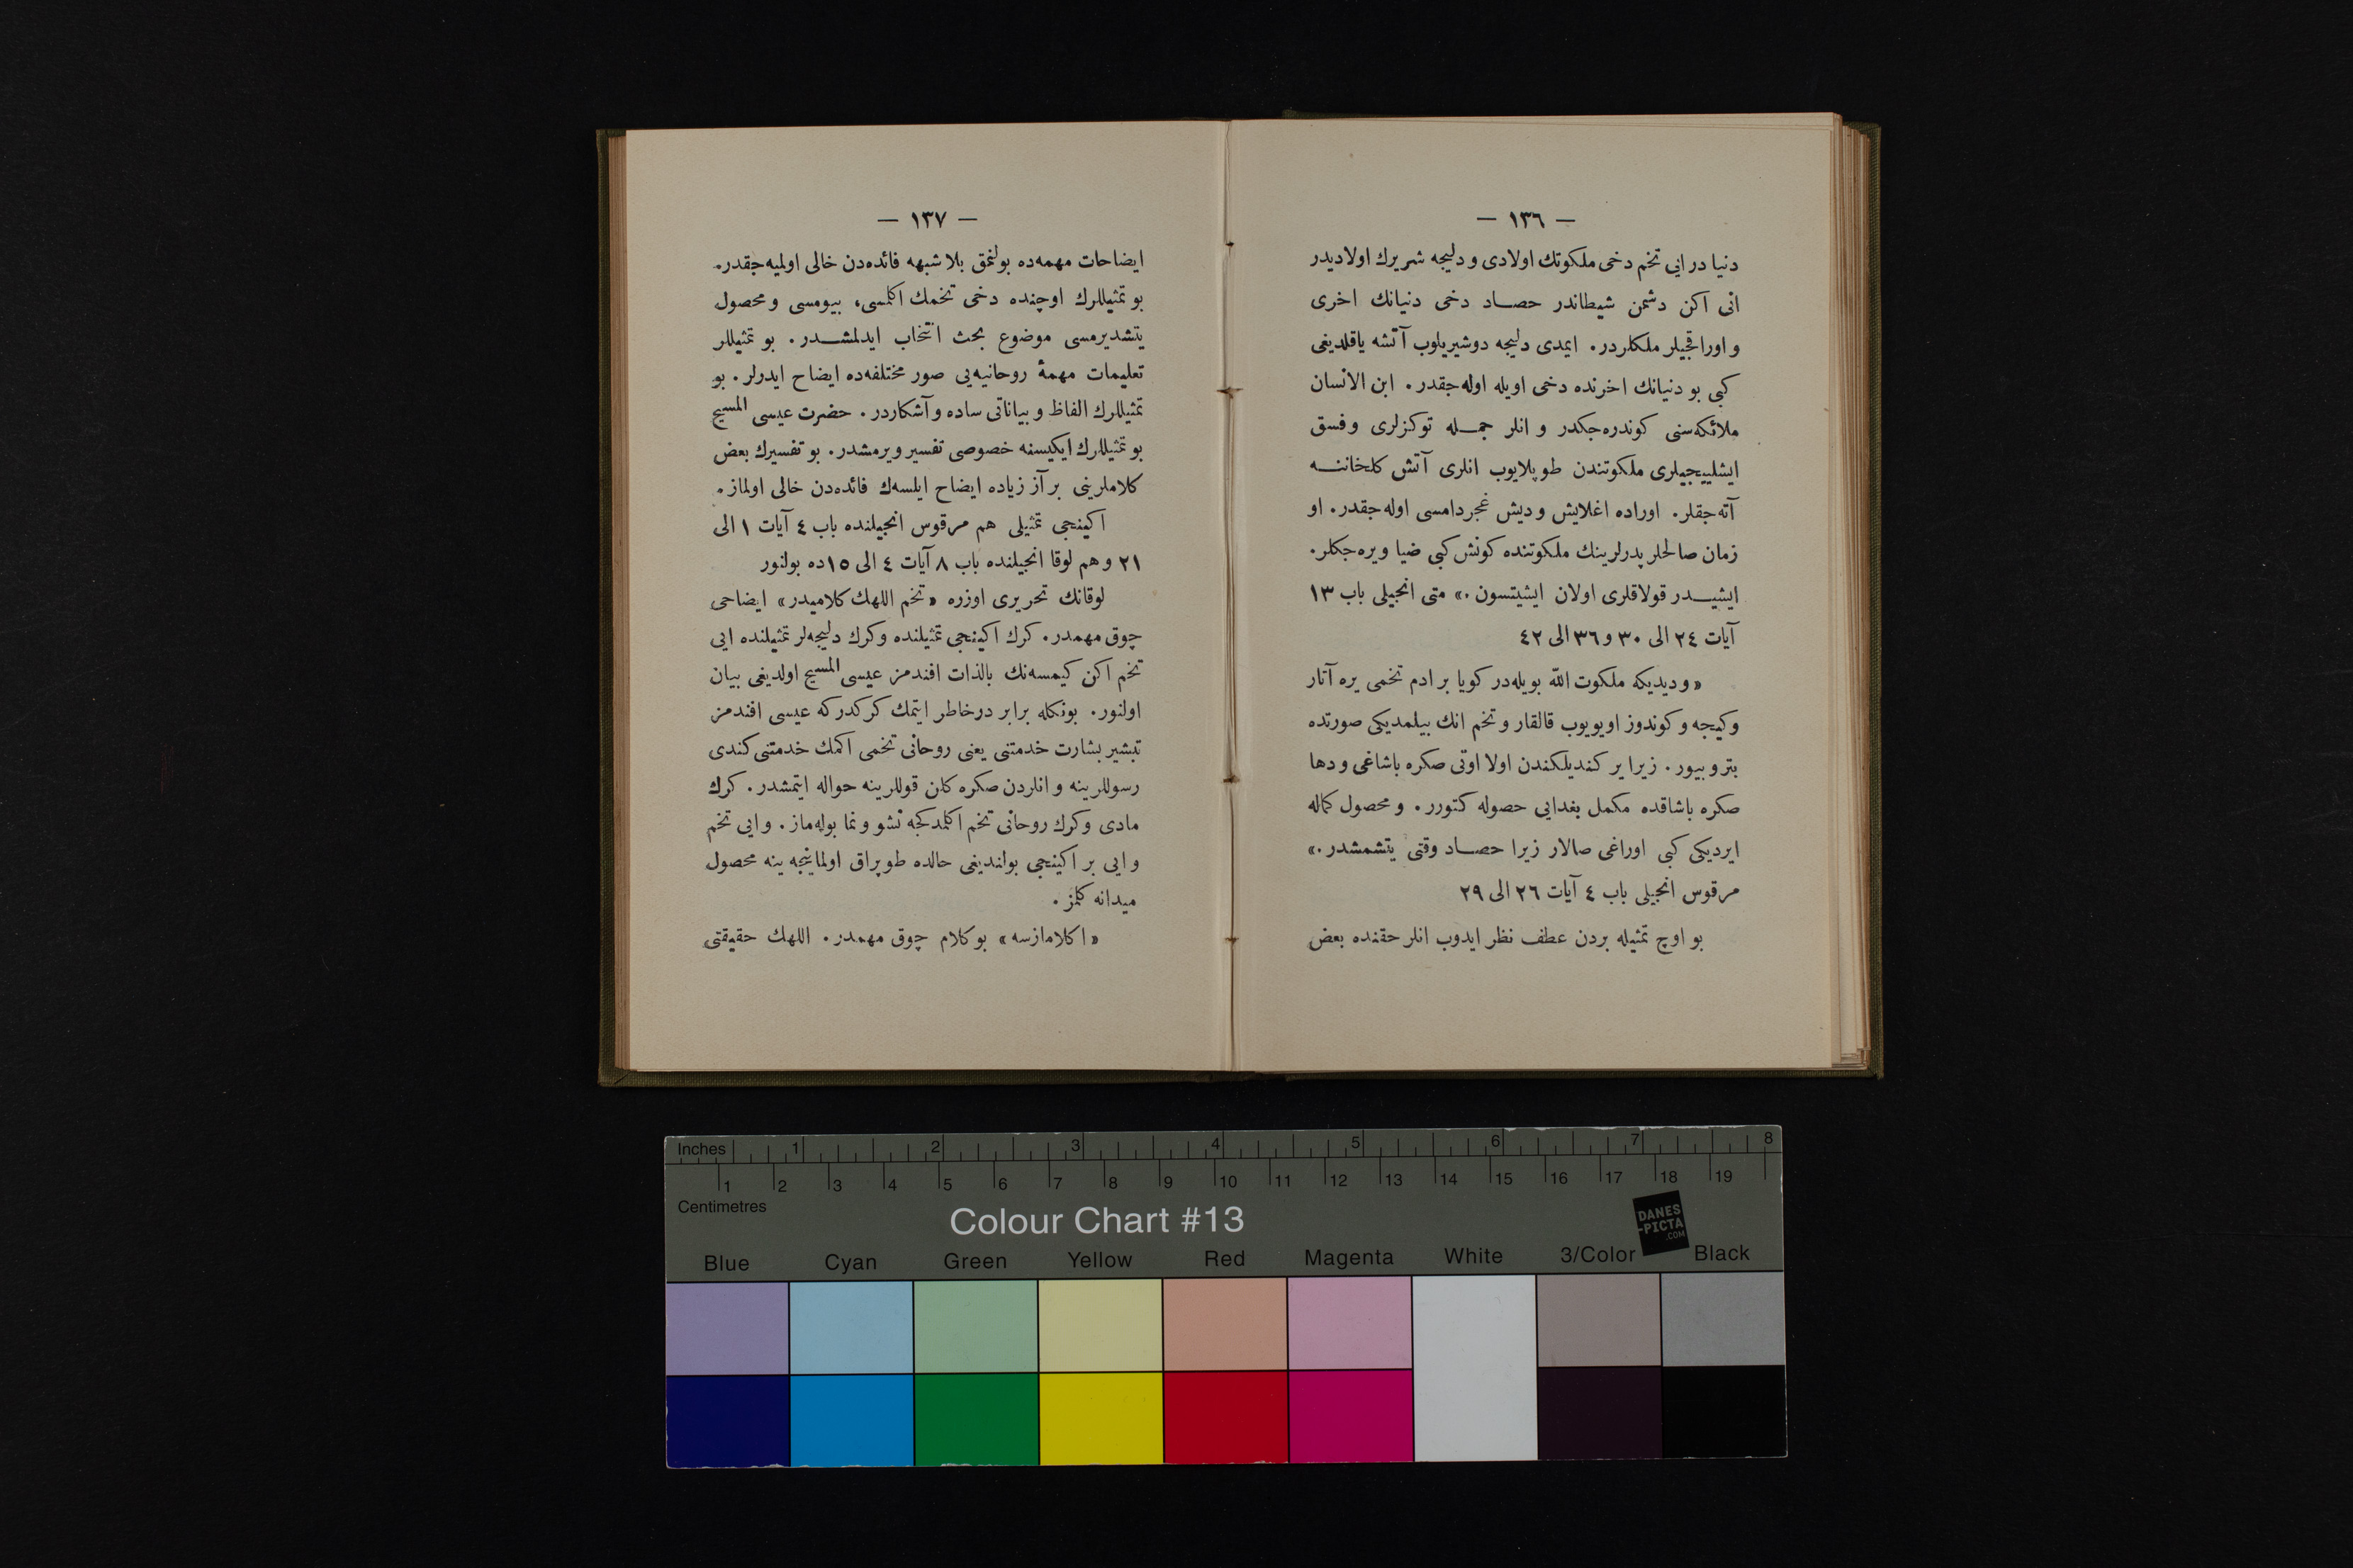 — ١٣٦ —
دنیا در ایی تخم دخی ملکوتك اولادی و دلیجه شریرك اولادیدر
انی اکن دشمن شیطاندر حصاد دخی دنیانك اخری
و اوراقجیلر ملکلردر. ایمدی دلیجه دوشیریلوب آتشه یاقلدیغی
کبی بو دنیانك اخرنده دخی اویله اوله‌جقدر. ابن الانسان
ملائکه‌سنی کوندره‌جکدر و انلر جمله توکزلری و فسق
ایشلییجیلری ملکوتندن طوپلایوب انلری آتش کلخاننه
آته‌جقلر. اوراده اغلایش و دیش غجردامسی اوله‌جقدر. او
زمان صالحلر پدرلرینك ملکوتنده کونش کبی ضیا ویره‌جکلر.
ایشیدر قولاقلری اولان ایشیتسون.» متی انجیلی باب ١٣
آیات ٢٤ الی ٣٠ و ٣٦ الی ٤٢
« و دیدیکه ملکوت الله بویله‌در کویا بر ادم تخمی یره آتار
وکیجه و کوندوز اویویوب قالقار و تخم انك بیلمدیکی صورتده
بتر و بیور. زیرا یر کندیلکندن اولا اوتی صکره باشاغی و دها
صکره باشاقده مکمل بغدایی حصوله کتورر. و محصول کماله
ایردیکی کبی اوراغی صالار زیرا حصاد وقتی یتشمشدر.»
مرقوس انجیلی باب ٤ آیات ٢٦ الی ٢٩
بو اوچ تمثیله بردن عطف نظر ایدوب انلر حقنده بعض
— ١٣٧ —
ایضاحات مهمه‌ده بولنمق بلا شبهه فائده‌دن خالی اولمیه‌جقدر.
بو تمثیللرك اوچنده دخی تخمك اکلمسی، بیومسی و محصول
یتشدیرمسی موضوع بحث انتخاب ایدلمشدر. بو تمثیللر
تعلیمات مهمهٔ روحانیه‌یی صور مختلفه‌ده ایضاح ایدرلر. بو
تمثیللرك الفاظ و بیاناتی ساده و آشکاردر. حضرت عیسی المسیح
بو تمثیللرك ایکیسنه خصوصی تفسیر ویرمشدر. بو تفسیرك بعض
کلاملرینی بر آز زیاده ایضاح ایلسه‌ك فائده‌دن خالی اولماز.
اکینجی تمثیلی هم مرقوس انجیلنده باب ٤ آیات ١ الی
٢١ و هم لوقا انجیلنده باب ٨ آیات ٤ الی ١٥ده بولنور
لوقانك تحریری اوزره «تخم اللهك کلامیدر» ایضاحی
چوق مهمدر. کرك اکینجی تمثیلنده وکرك دلیجه‌لر تمثیلنده ایی
تخم اکن کیمسه‌نك بالذات افندمز عیسی المسیح اولدیغی بیان
اولنور. بونکله برابر درخاطر ایتمك کرکدرکه عیسی افندمز
تبشیر بشارت خدمتنی یعنی روحانی تخمی اکمك خدمتنی کندی
رسوللرینه و انلردن صکره کلن قوللرینه حواله ایتمشدر. کرك
مادی وکرك روحانی تخم اکلمدکجه نشو و نما بوله‌ماز. و ایی تخم
و ایی بر اکینجی بولندیغی حالده طوپراق اولماینجه ینه محصول
میدانه کلمز.
«اکلامازسه» بو کلام چوق مهمدر. اللهك حقیقتی
Inches 1 2 3 4 5 6 7 8
1 2 3 4 5 6 7 8 9 10 11 12 13 14 15 16 17 18 19
Centimetres
Colour Chart #13
DANES
-PICTA
.COM
Blue Cyan Green Yellow Red Magenta White 3/Color Black